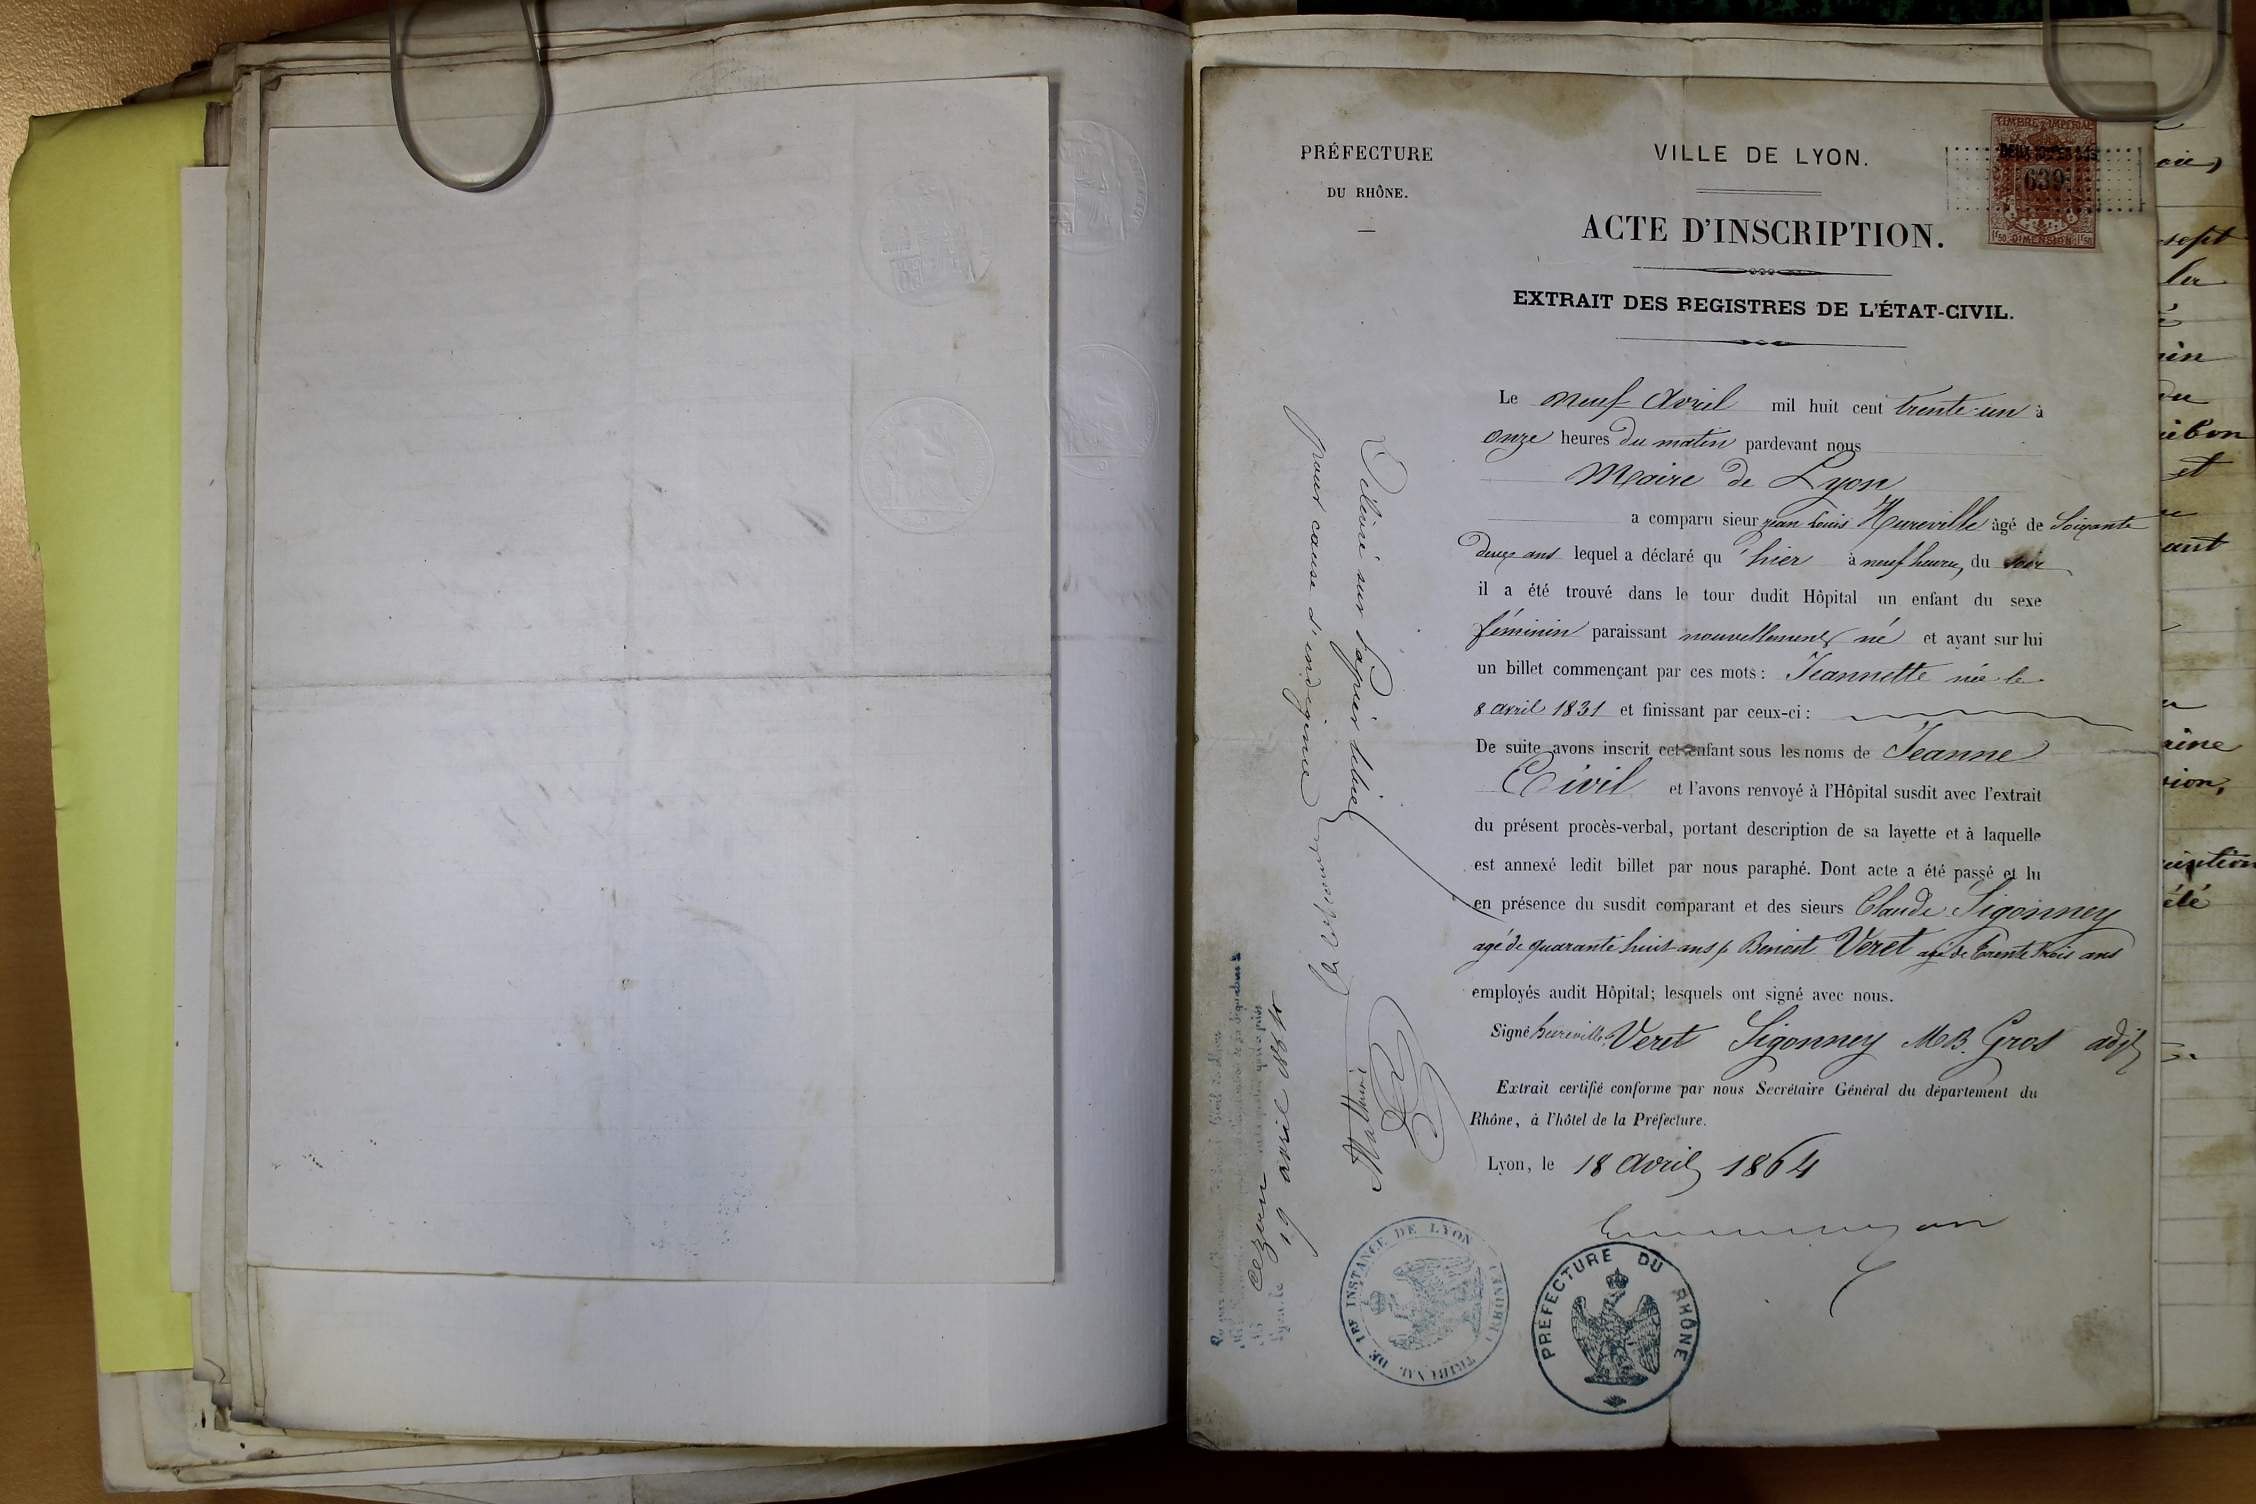 PRÉFECTURE
DU RHÔNE.
VILLE DE LYON.
TIMBRE IMPÉRIAL
639
1f50 DIMENSION 1f50
ACTE D'INSCRIPTION.
EXTRAIT DES REGISTRES DE L'ÉTAT-CIVIL.
Le neuf Avril mil huit cent trente-un à
onze heures du matin pardevant nous
Maire de Lyon
a comparu sieur jean Louis Hureville âgé de Soixante
deux ans lequel a déclaré qu'hier à neuf heures du soir
il a été trouvé dans le tour dudit Hôpital un enfant du sexe
féminin paraissant nouvellement né et ayant sur lui
un billet commençant par ces mots : Jeannette née le
8 avril 1831 et finissant par ceux-ci :
De suite avons inscrit cet enfant sous les noms de Jeanne
Civil et l'avons renvoyé à l'Hôpital susdit avec l'extrait
du présent procès-verbal, portant description de sa layette et à laquelle
est annexé ledit billet par nous paraphé. Dont acte a été passé et lu
en présence du susdit comparant et des sieurs Claude Sigonney
agé de quarante huit ans & Benoit Veret agé de trente trois ans
employés audit Hôpital; lesquels ont signé avec nous.
Signé hureville, Veret Sigonney M.B. Gros adjt
Extrait certifié conforme par nous Secrétaire Général du département du
Rhône, à l'hôtel de la Préfecture.
Lyon, le 18 avril 1864
PRÉFECTURE DU RHÔNE
TRIBUNAL DE 1RE INSTANCE DE LYON
Délivré sur Papier libre
pour cause d'indigence
Mathieu
Lyon le 19 avril 1864
oie,
sept
du
ant
et
été